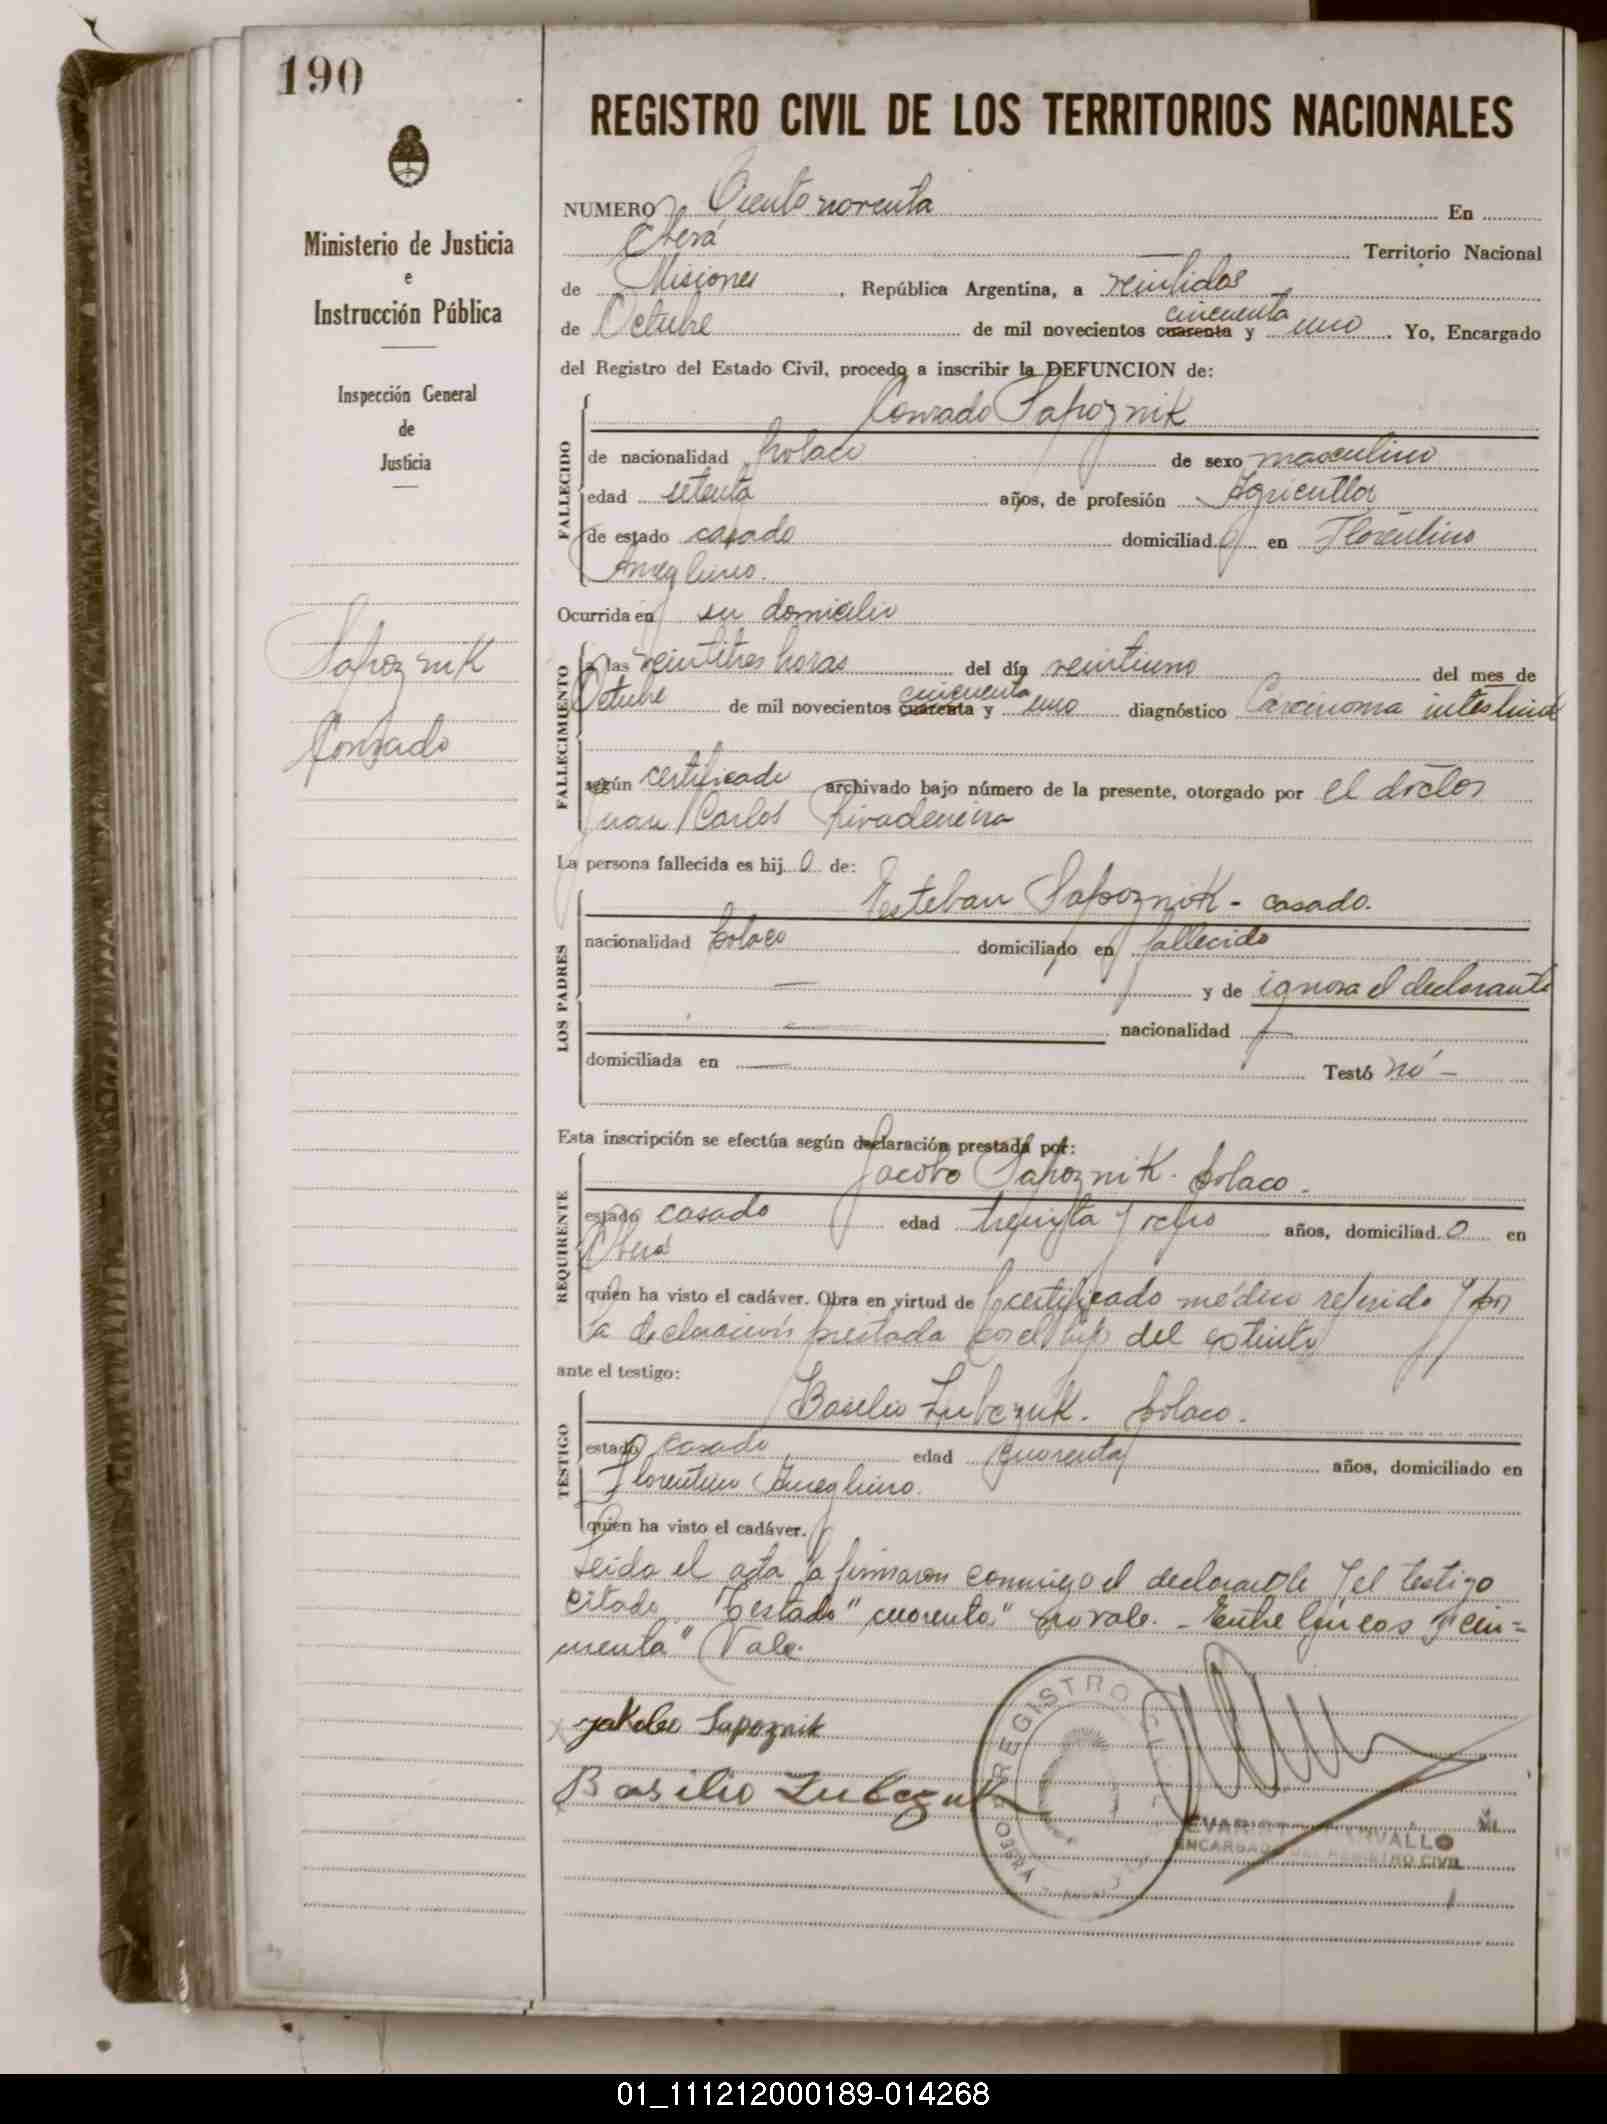 190
REGISTRO CIVIL DE LOS TERRITORIOS NACIONALES
Ministerio de Justicia
e
Instrucción Pública
Inspección General
de
Justicia
Sapoznik
Conrado
NUMERO Ciento noventa En
Oberá Territorio Nacional
de Misiones, República Argentina, a veintidos
de Octubre de mil novecientos cuarenta cincuenta y uno. Yo, Encargado
del Registro del Estado Civil, procedo a inscribir la DEFUNCION de:
FALLECIDO
Conrado Sapoznik
de nacionalidad polaco de sexo masculino
edad setenta años, de profesión Agricultor
de estado casado domiciliado en Florentino
Ameghino.
Ocurrida en su domicilio
FALLECIMIENTO
a las veintitres horas del día veintiuno del mes de
Octubre de mil novecientos cuarenta cincuenta y uno diagnóstico Carcinoma intestinal
según certificado archivado bajo número de la presente, otorgado por el doctor
Juan Carlos Rivadeneira
La persona fallecida es hijo de:
LOS PADRES
Esteban Sapoznik - casado.
nacionalidad polaco domiciliado en fallecido
— y de ignora el declarante
— nacionalidad —
domiciliada en — Testó nó -
Esta inscripción se efectúa según declaración prestada por:
REQUIRENTE
Jacobo Sapoznik. polaco.
estado casado edad treinta y años, domiciliado en
Oberá
quien ha visto el cadáver. Obra en virtud de certificado médico referido y por
la declaración prestada por el hijo del extinto
ante el testigo:
TESTIGO
Basilio Zubczuk. polaco.
estado casado edad cuarenta años, domiciliado en
Florentino Ameghino.
quien ha visto el cadáver.
Leida el acta la firmaron conmigo el declarante y el testigo
citado. Testado "cuarenta" no vale. - Entre lineas "cin=
cuenta" Vale.
Jakobo Sapoznik
Basilio Zubczuk
REGISTRO CIVIL
OBERA
ENCARGADO DEL REGISTRO CIVIL
01_111212000189-014268